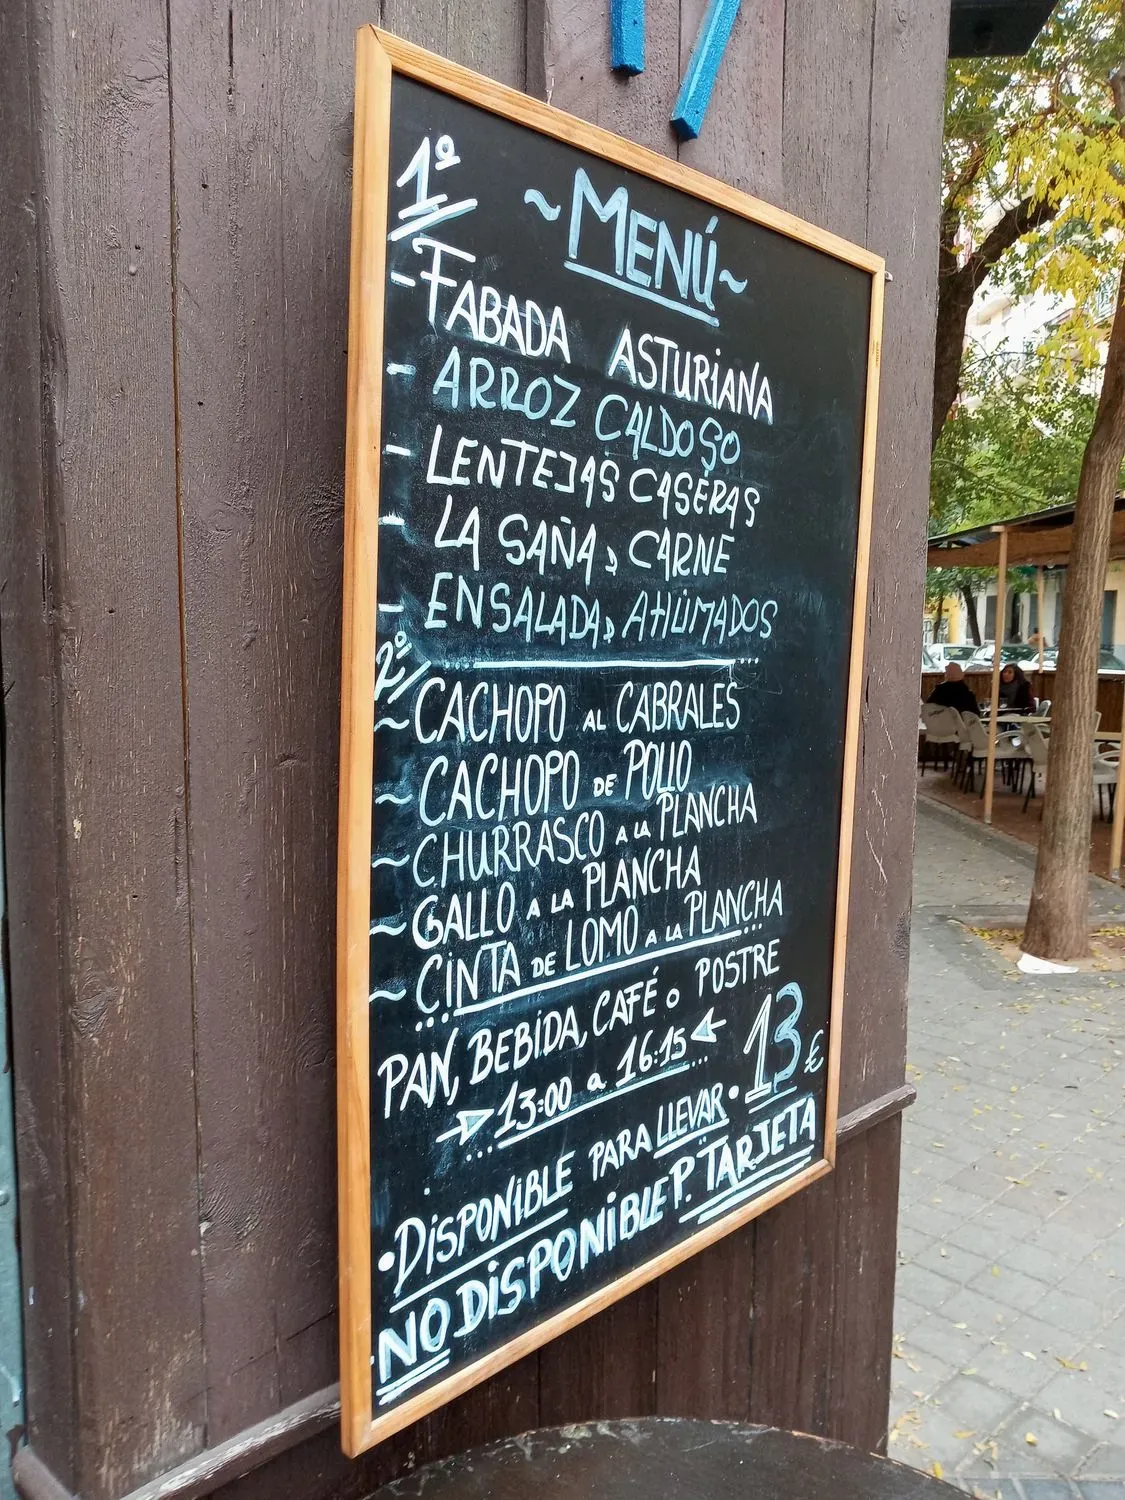 17
1º
~MENÚ~
- FABADA ASTURIANA
- ARROZ CALDOSO
- LENTEJAS CASERAS
- LA SAÑA D CARNE
- ENSALADA D AHÜMADOS
2º
~ CACHOPO AL CABRALES
~ CACHOPO DE POLLO
~ CHURRASCO A LA PLANCHA
~ GALLO A LA PLANCHA
~ CINTA DE LOMO A LA PLANCHA
PAN, BEBIDA, CAFÉ O POSTRE
13:00 a 16:15
13€
• DISPONIBLE PARA LLEVAR •
NO DISPONIBLE P. TARJETA